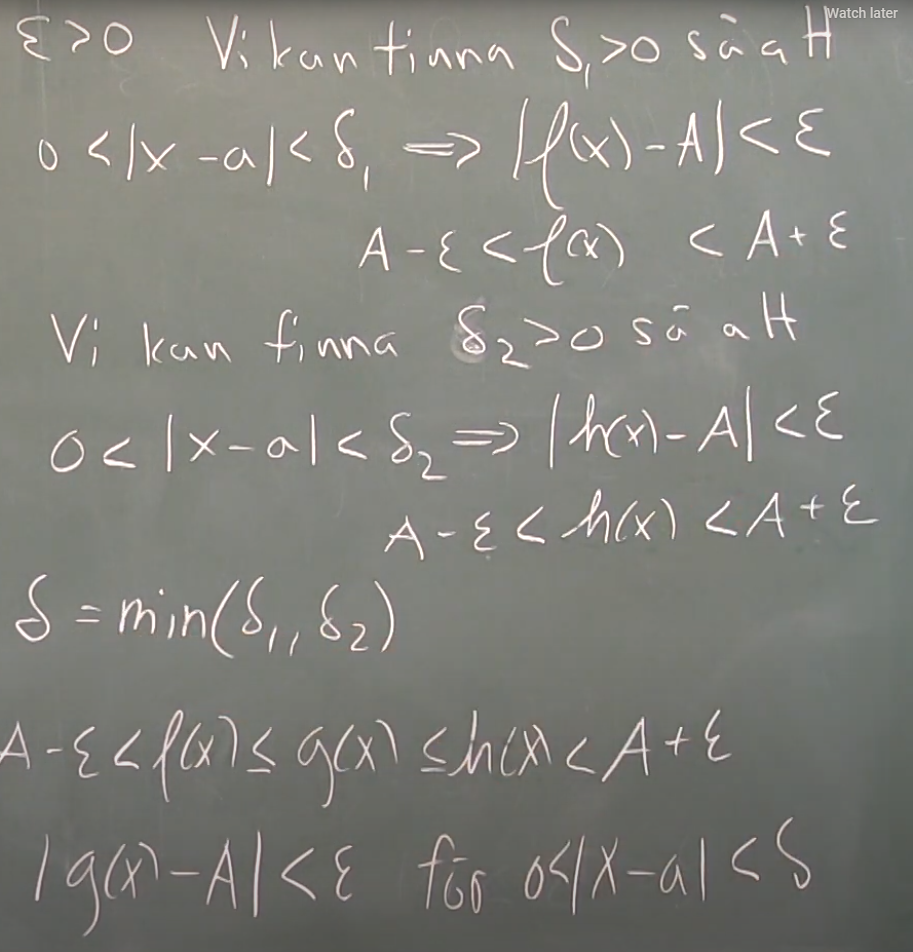 Watch later
ε>0 Vi kan finna δ₁>0 så att
0<|x-a|<δ₁ ⇒ |f(x)-A|<ε
A-ε<f(x) <A+ε
Vi kan finna δ₂>0 så att
0<|x-a|<δ₂ ⇒ |h(x)-A|<ε
A-ε<h(x)<A+ε
δ=min(δ₁,δ₂)
A-ε<f(x)≤g(x)≤h(x)<A+ε
|g(x)-A|<ε för 0<|x-a|<δ